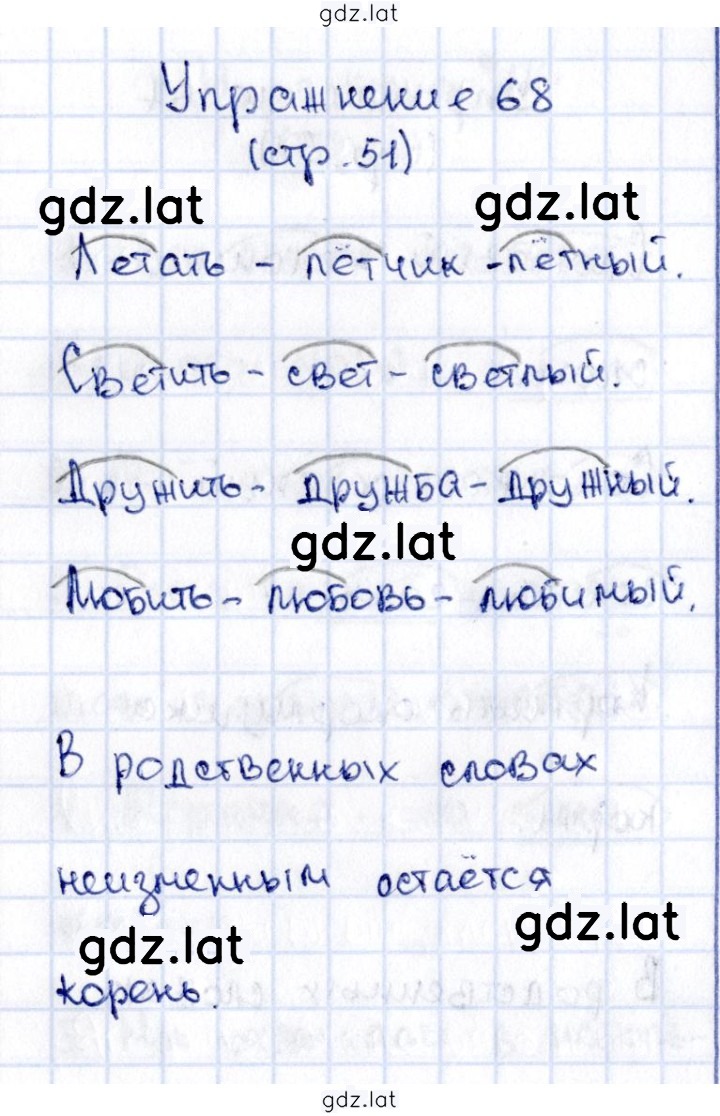 gdz.lat
Упражнение 68
(стр. 51)
gdz.lat gdz.lat
Летать - лётчик - лётный.
Светить - свет - светлый.
Дружить - дружба - дружный.
gdz.lat
Любить - любовь - любимый.
В родственных словах
неизменным остаётся
gdz.lat gdz.lat
корень.
gdz.lat